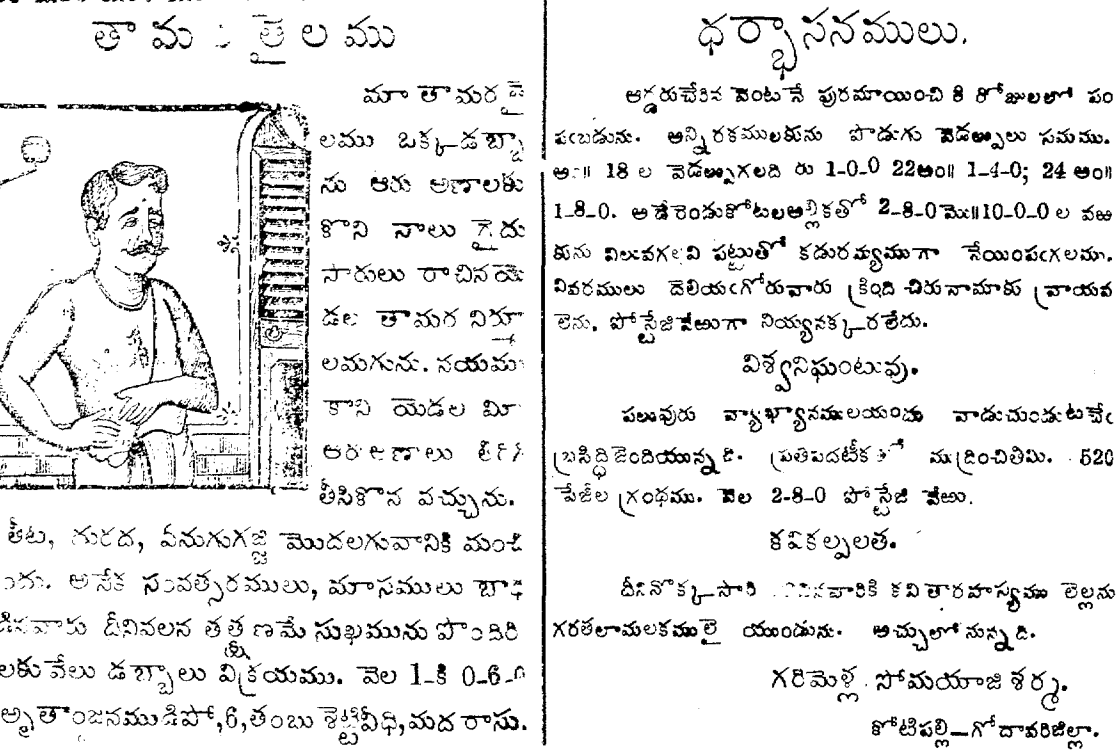 తామర తైలము
మా తామర తై
లము ఒక్క డబ్బా
ను ఆరు అణాలకు
కొని నాలు గైదు
సారులు రాచినయె
డల తామర నిర్మూ
లమగును. నయము
కాని యెడల మీ
ఆరుఅణాలు తిరిగి
తీసికొన వచ్చును.
తీట, గురద, ఏనుగుగజ్జి మొదలగువానికి మంచి
మందు. అనేక సంవత్సరములు, మాసములు బాధ
దీనివలన తత్క్షణమే సుఖమును పొందిరి
లకువేలు డబ్బాలు విక్రయము. వెల 1-కి 0-6-0
అమృతాంజనముడిపో, 6, తంబుశెట్టివీధి, మదరాసు.
ధర్భాసనములు.
ఆర్డరుచేరిన వెంటనే పురమాయించి 8 రోజులలో పం
పఁబడును. అన్నిరకములకును పొడుగు వెడల్పులు సమము.
అం॥ 18 ల వెడల్పుగలది రు 1-0-0 22అం॥ 1-4-0; 24 అం॥
1-8-0. అడేరెండుకోటులఅల్లికతో 2-8-0 మొ॥10-0-0 ల వఱ
కును విలువగలవి పట్టుతో కడురమ్యముగా నేయింపఁగలము.
వివరములు దెలియఁగోరువారు క్రింది చిరునామాకు వ్రాయవ
లెను. పోస్టేజివేఱుగా నియ్యనక్కరలేదు.
విశ్వనిఘంటువు.
పలువురు వ్యాఖ్యానములయందు వాడుచుండుటచేఁ
బ్రసిద్ధిజెందియున్నది. ప్రతిపదటీకతో ముద్రించితిమి. 520
పేజీల గ్రంథము. వెల 2-8-0 పోస్టేజి వేఱు.
కవికల్పలత.
దీనినొక్కసారి కవితారహస్యము లెల్లను
గరతలామలకములై యుండును. అచ్చులోనున్నది.
గరిమెళ్ల సోమయాజిశర్మ.
కోటిపల్లి—గోదావరిజిల్లా.